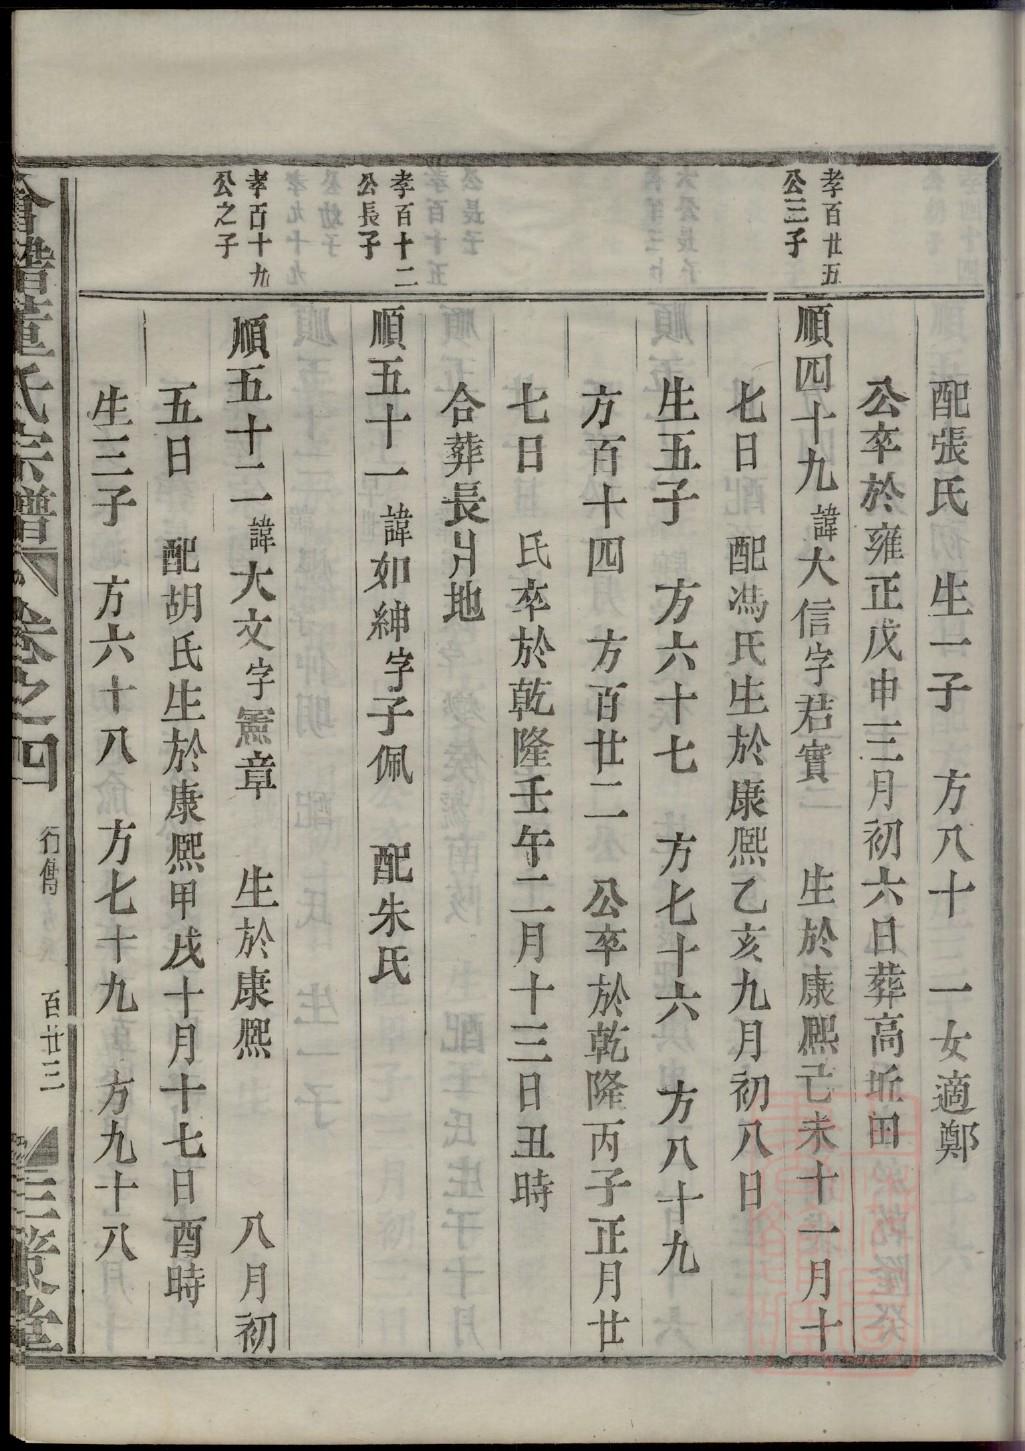 配張氏 生一子 方八十 一女適鄭
公卒於雍正戊申三月初六日葬高坵田
孝百廿五
公三子
順四十九諱大信字君實 生於康熙己未十一月十
七日 配馮氏生於康熙乙亥九月初八日
生五子 方六十七 方七十六 方八十九
方百十四 方百廿二 公卒於乾隆丙子正月廿
七日 氏卒於乾隆壬午二月十三日丑時
合葬長爿地
孝百十二
公長子
順五十一諱如紳字子佩 配朱氏
孝百十九
公之子
順五十二諱大文字憲章 生於康熙 八月初
五日 配胡氏生於康熙甲戌十月十七日酉時
生三子 方六十八 方七十九 方九十八
會稽董氏宗譜 卷之四 行傳 百廿三 三策堂